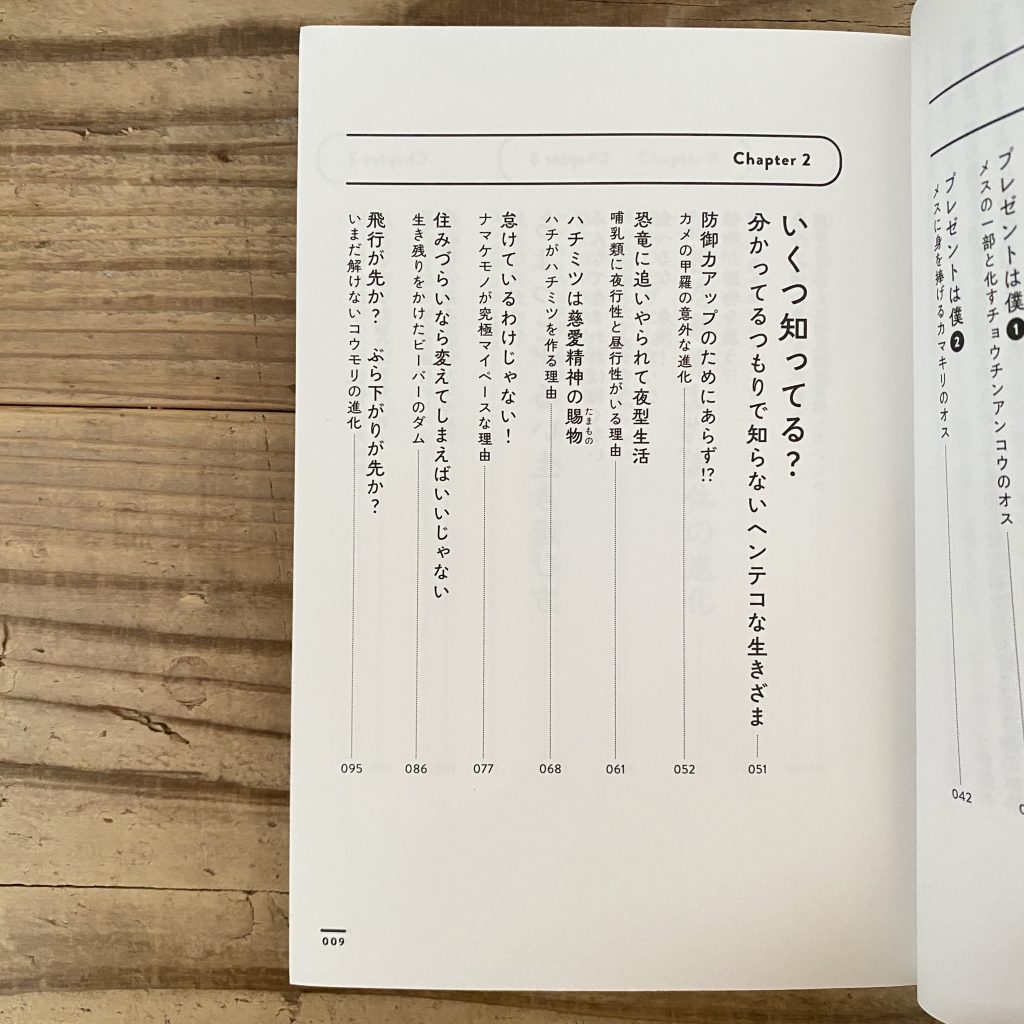 プレゼントは僕❶
メスの一部と化すチョウチンアンコウのオス
プレゼントは僕❷
メスに身を捧げるカマキリのオス
042
Chapter 2
いくつ知ってる？
分かってるつもりで知らないヘンテコな生きざま
051
防御力アップのためにあらず!?
カメの甲羅の意外な進化
052
恐竜に追いやられて夜型生活
哺乳類に夜行性と昼行性がいる理由
061
ハチミツは慈愛精神の賜物
たまもの
ハチがハチミツを作る理由
068
怠けているわけじゃない！
ナマケモノが究極マイペースな理由
077
住みづらいなら変えてしまえばいいじゃない
生き残りをかけたビーバーのダム
086
飛行が先か？　ぶら下がりが先か？
いまだ解けないコウモリの進化
095
009